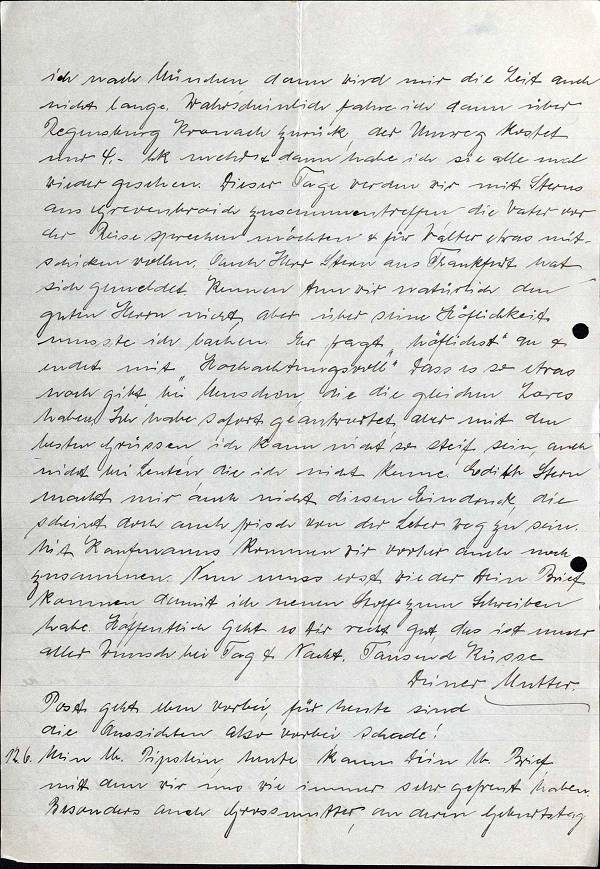 ich nach München dann wird mir die Zeit auch
nicht lange. Wahrscheinlich fahre ich dann über
Regensburg Kronach zurück, der Umweg kostet
nur 4.- Mk mehr & dann habe ich sie alle mal
wieder gesehen. Dieser Tage werden wir mit Sterns
aus Grevenbroich zusammentreffen, die Vater vor
der Reise sprechen möchten & für Walter etwas mit-
schicken wollen. Auch Herr Stern aus Frankfurt hat
sich gemeldet. Kennen tun wir natürlich den
guten Herrn nicht, aber über seine Höflichkeit
musste ich lachen. Er fragt "höflichst" an &
endet mit "Hochachtungsvoll". Dass es so etwas
noch gibt bei Menschen, die die gleichen Zores
haben. Ich habe sofort geantwortet aber mit den
besten Grüssen, ich kann nicht so steif sein, auch
nicht bei Leuten die ich nicht kenne. Edith Stern
macht mir auch nicht diesen Eindruck, die
scheint doch auch frisch von der Leber weg zu sein.
Mit Kaufmanns kommen wir vorher auch noch
zusammen. Nun muss erst wieder Dein Brief
kommen damit ich neuen Stoff zum Schreiben
habe. Hoffentlich geht es Dir recht gut, das ist unser
aller Wunsch bei Tag & Nacht. Tausend Küsse
Deiner Mutter.
Post geht eben vorbei, für heute sind
die Aussichten also vorbei schade!
12.6. Mein lb. heute kam Dein lb. Brief
mit dem wir uns wie immer sehr gefreut haben.
Besonders auch Grossmutter, an deren Geburtstag